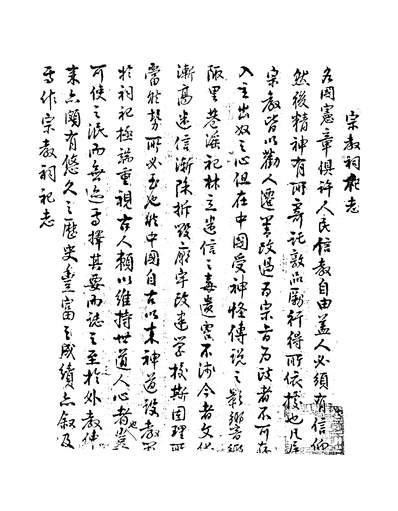 宗教祠祀志
各国憲章俱許人民信教自由蓋人必須有信仰
然後精神有所寄託敦品勵行得所依據也凡屬
宗教皆以勸人遷善改過為宗旨為政者不可存
入主出奴之心但在中國受神怪傳說之影響音
陋里巷淫祀林立迷信之毒遺害不淺今者文化
漸高迷信漸除拆毀廟宇改建學校斯固理所
當然勢所必至也然中國自古以來神道設教
於祠祀極端重視古人賴以維持世道人心者豈
可使之泯而無迹爰擇其要而誌之至於外教傳
來亦頗有悠久之歷史豐富之成績亦叙及
焉作宗教祠祀志